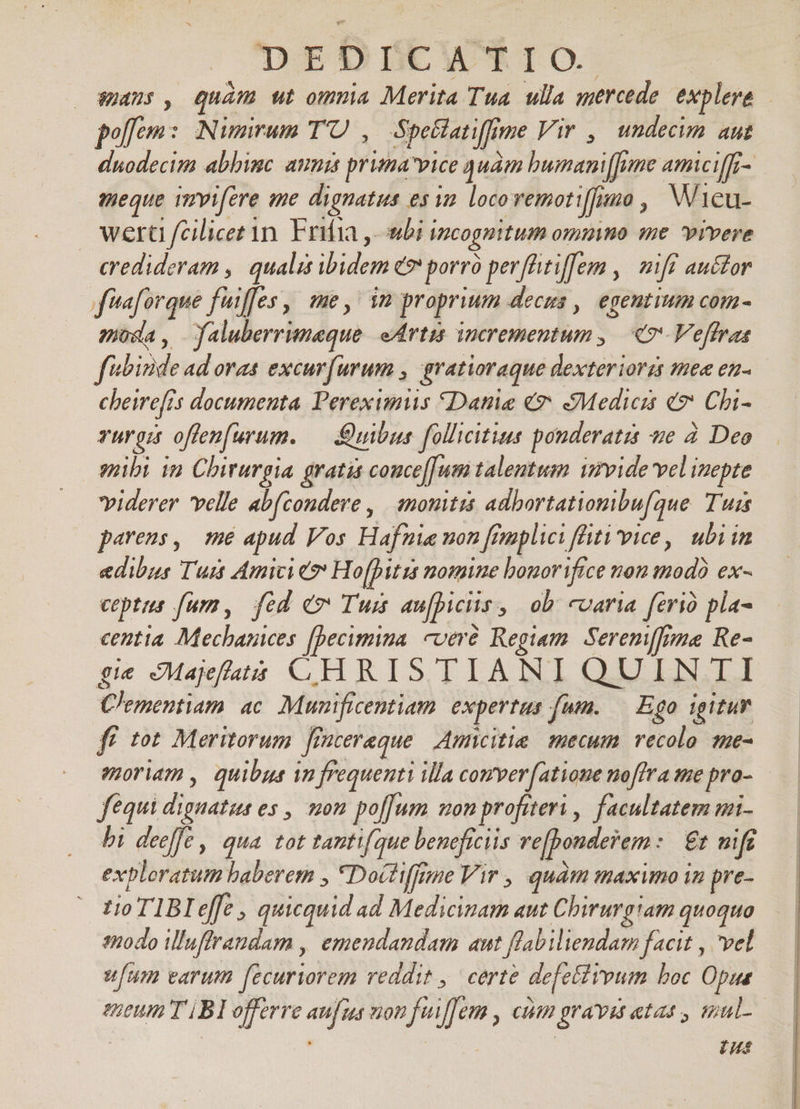 DEDICATIO.
mans, quàm ut omnia Merita Tua ulla mercede explere
poſſem: Nimirum TU, Spectatiſſime Vir, undecim aut
duodecim abhinc annis prima vice quàm humaniſſime amiciſſi-
meque inviſere me dignatus es in loco remotiſſimo, Wieu-
werti ſcilicet in Friſia, ubi incognitum omnino me vivere
credideram, qualis ibidem & porrò perſtitiſſem, niſi auctor
ſuaſorque fuiſſes, me, in proprium decus, egentium com-
moda, ſaluberrimæque Artis incrementum, & Veſtras
ſubinde ad oras excurſurum, gratioraque dexterioris meæ en-
cheireſis documenta Pereximiis Daniæ & Medicis & Chi-
rurgis oſtenſurum. Quibus ſollicitius ponderatis ne à Deo
mihi in Chirurgia gratis conceſſum talentum invide vel inepte
viderer velle abſcondere, monitis adhortationibuſque Tuis
parens, me apud Vos Hafniæ non ſimplici ſtiti vice, ubi in
ædibus Tuis Amici & Hoſpitis nomine honorifice non modò ex-
ceptus ſum, ſed & Tuis auſpiciis, ob varia ſeriò pla-
centia Mechanices ſpecimina verè Regiam Sereniſſimæ Re-
giæ Majeſtatis CHRISTIANI QUINTI
Clementiam ac Munificentiam expertus ſum. Ego igitur
ſi tot Meritorum ſinceræque Amicitiæ mecum recolo me-
moriam, quibus in frequenti illa converſatione noſtra me pro-
ſequi dignatus es, non poſſum non profiteri, facultatem mi-
hi deeſſe, qua tot tantiſque beneficiis reſponderem: Et niſi
exploratum haberem, Doctiſſime Vir, quàm maximo in pre-
tio TIBI eſſe, quicquid ad Medicinam aut Chirurgiam quoquo
modo illuſtrandam, emendandam aut ſtabiliendam facit, vel
uſum earum ſecuriorem reddit, certè defectivum hoc Opus
meum TIBI offerre auſus non fuiſſem, cùm gravis ætas, mul-
tus